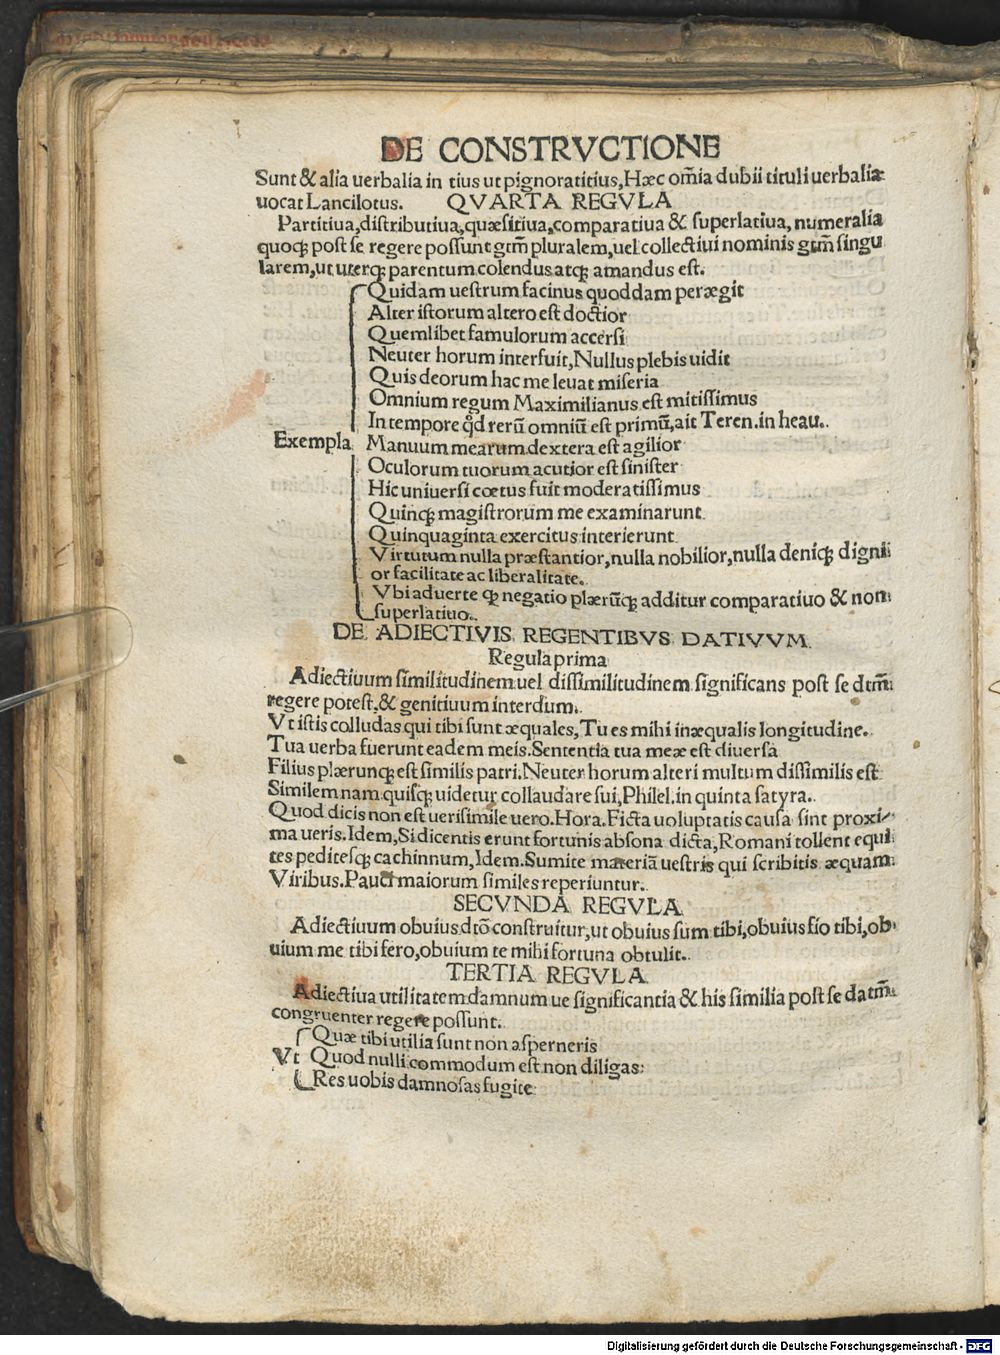 DE CONSTRVCTIONE
Sunt & alia uerbalia in tius ut pignoratitius, Hæc om̃ia dubii tituli uerbalia
uocat Lancilotus. QVARTA REGVLA
Partitiua, distributiua, quæsitiua, comparatiua & superlatiua, numeralia
quoqꝫ post se regere possunt gtm̃ pluralem, uel collectiui nominis gtm̃ singu
larem, ut uterqꝫ parentum colendus atqꝫ amandus est.
Quidam uestrum facinus quoddam peræegit
Alter istorum altero est doctior
Quemlibet famulorum accersi
Neuter horum interfuit, Nullus plebis uidit
Quis deorum hac me leuat miseria
Omnium regum Maximilianus est mitissimus
In tempore q̊d rerū omniū est primū, ait Teren. in heau.
Exempla Manuum mearum dextera est agilior
Oculorum tuorum acutior est sinister
Hic uniuersi cœtus fuit moderatissimus
Quinqꝫ magistrorum me examinarunt
Quinquaginta exercitus interierunt
Virtutum nulla præstantior, nulla nobilior, nulla deniqꝫ digni
or facilitate ac liberalitate.
Vbi aduerte qꝫ negatio plærūqꝫ additur comparatiuo & non
superlatiuo.
DE ADIECTIVIS REGENTIBVS DATIVVM
Regula prima
Adiectiuum similitudinem uel dissimilitudinem significans post se dtm̃
regere potest, & genitiuum interdum.
Vt istis colludas qui tibi sunt æquales, Tu es mihi inæqualis longitudine.
Tua uerba fuerunt eadem meis. Sententia tua meæ est diuersa
Filius plærunqꝫ est similis patri. Neuter horum alteri multum dissimilis est
Similem nam quisqꝫ uidetur collaudare sui, Philel. in quinta satyra.
Quod dicis non est uerisimile uero. Hora. Ficta uoluptatis causa sint proxi
ma ueris. Idem, Si dicentis erunt fortunis absona dicta, Romani tollent equi
tes peditesqꝫ cachinnum, Idem. Sumite materiā uestris qui scribitis æquam
Viribus. Pauci maiorum similes reperiuntur.
SECVNDA REGVLA
Adiectiuum obuius dtō construitur, ut obuius sum tibi, obuius fio tibi, ob
uium me tibi fero, obuium te mihi fortuna obtulit.
TERTIA REGVLA
Adiectiua utilitatem damnum ue significantia & his similia post se datm̃
congruenter regere possunt.
Quæ tibi utilia sunt non asperneris
Vt Quod nulli commodum est non diligas:
Res uobis damnosas fugite
Digitalisierung gefördert durch die Deutsche Forschungsgemeinschaft - DFG